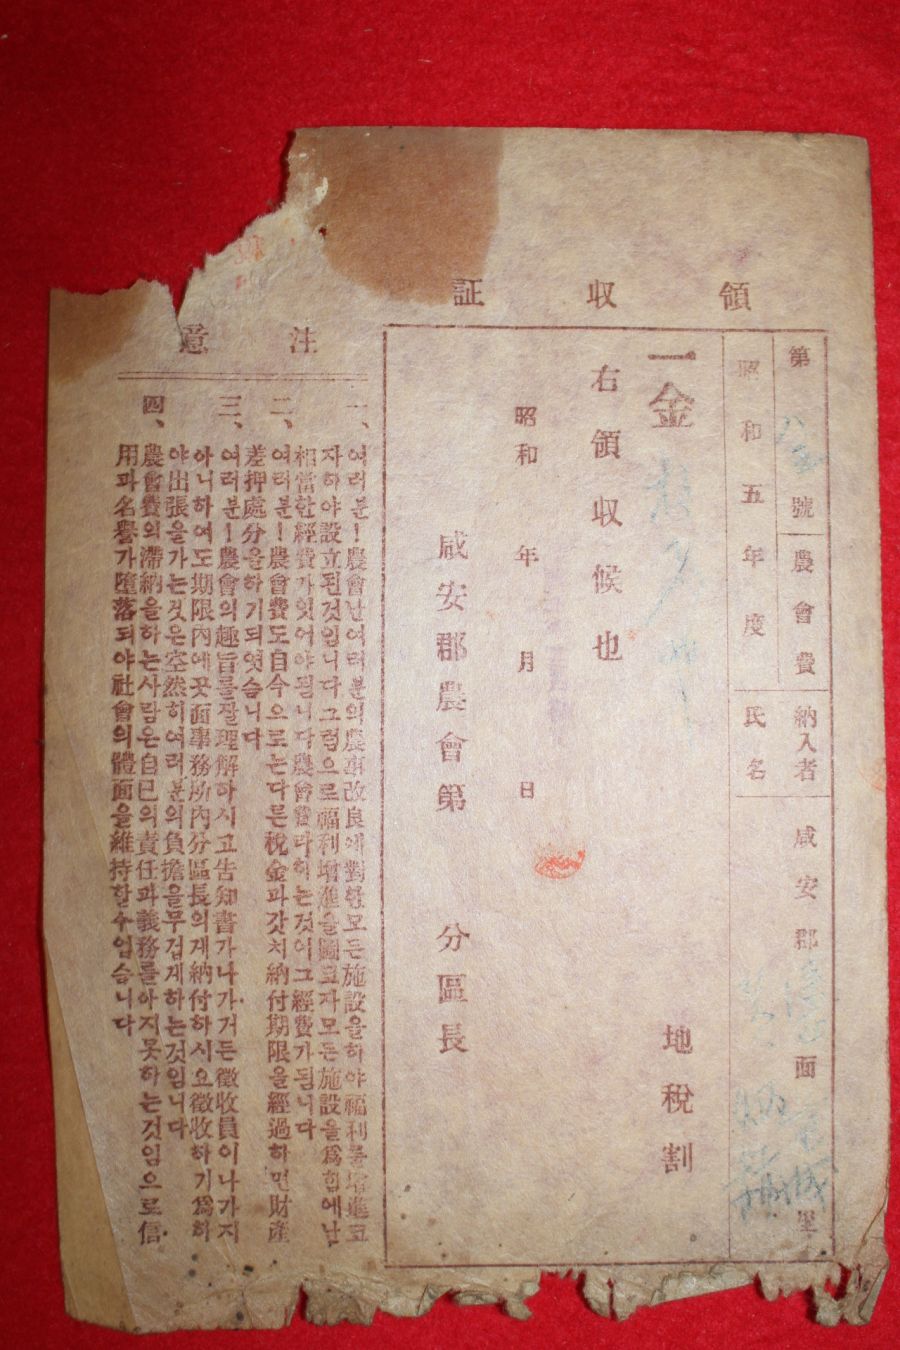 領收証
第 號 農會費 納入者 咸安郡 面 里
昭和五年度 氏名
一金 地稅割
右領收候也
昭和 年 月 日
咸安郡農會第 分區長
注意
一、여러분!農會난여러분의農事改良에對한모든施設을하야福利를增進코
자하야設立된것입니다그럼으로福利增進을圖코자모든施設을爲함에난
相當한經費가잇어야됩니다農會費다하는것이그經費가됩니다
二、여러분!農會費도自今으로는다른稅金과갓치納付期限을經過하면財產
差押處分을하기되엿습니다
三、여러분!農會의趣旨를잘理解하시고告知書가나가거든徵收員이나가지
아니하여도期限內에곳面事務所內分區長의게納付하시오徵收하기爲하
야出張을가는것은空然히여러분의負擔을무겁게하는것입니다
四、農會費의滯納을하는사람은自己의責任과義務를아지못하는것임으로信
用과名譽가墮落되야社會의體面을維持할수업습니다